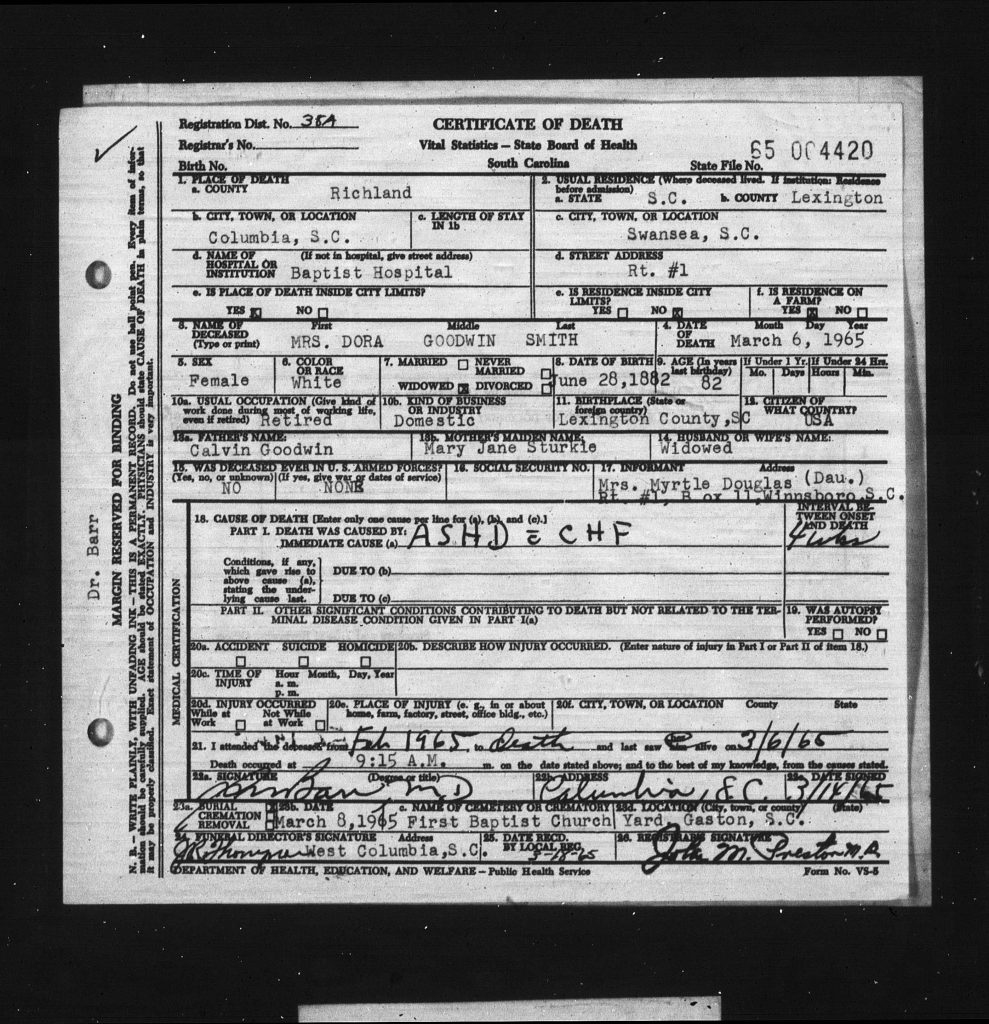 Registration Dist. No. 38A
CERTIFICATE OF DEATH
Registrar's No.
Vital Statistics — State Board of Health
65 004420
Birth No.
South Carolina
State File No.
1. PLACE OF DEATH
a. COUNTY Richland
2. USUAL RESIDENCE (Where deceased lived. If institution: Residence before admission)
a. STATE S.C. b. COUNTY Lexington
b. CITY, TOWN, OR LOCATION
Columbia, S.C.
c. LENGTH OF STAY IN 1b
c. CITY, TOWN, OR LOCATION
Swansea, S.C.
d. NAME OF HOSPITAL OR INSTITUTION (If not in hospital, give street address)
Baptist Hospital
d. STREET ADDRESS
Rt. #1
e. IS PLACE OF DEATH INSIDE CITY LIMITS?
YES X NO
e. IS RESIDENCE INSIDE CITY LIMITS?
YES NO X
f. IS RESIDENCE ON A FARM?
YES X NO
3. NAME OF DECEASED (Type or print)
First Middle Last
MRS. DORA GOODWIN SMITH
4. DATE OF DEATH
Month Day Year
March 6, 1965
5. SEX
Female
6. COLOR OR RACE
White
7. MARRIED NEVER MARRIED
WIDOWED X DIVORCED
8. DATE OF BIRTH
June 28,1882
9. AGE (In years last birthday)
82
If Under 1 Yr.
Mo. Days
If Under 24 Hrs.
Hours Min.
10a. USUAL OCCUPATION (Give kind of work done during most of working life, even if retired)
Retired
10b. KIND OF BUSINESS OR INDUSTRY
Domestic
11. BIRTHPLACE (State or foreign country)
Lexington County,SC
12. CITIZEN OF WHAT COUNTRY?
USA
13a. FATHER'S NAME:
Calvin Goodwin
13b. MOTHER'S MAIDEN NAME:
Mary Jane Sturkie
14. HUSBAND OR WIFE'S NAME:
Widowed
15. WAS DECEASED EVER IN U. S. ARMED FORCES?
(Yes, no, or unknown) (If yes, give war or dates of service)
NO NONE
16. SOCIAL SECURITY NO.
17. INFORMANT Address
Mrs. Myrtle Douglas (Dau.)
Rt. #1, Box 11,Winnsboro,S.C.
18. CAUSE OF DEATH [Enter only one cause per line for (a), (b), and (c).]
INTERVAL BETWEEN ONSET AND DEATH
PART I. DEATH WAS CAUSED BY:
IMMEDIATE CAUSE (a) ASHD c̄ CHF
4 wks
Conditions, if any, which gave rise to above cause (a), stating the underlying cause last.
DUE TO (b)
DUE TO (c)
PART II. OTHER SIGNIFICANT CONDITIONS CONTRIBUTING TO DEATH BUT NOT RELATED TO THE TERMINAL DISEASE CONDITION GIVEN IN PART I(a)
19. WAS AUTOPSY PERFORMED?
YES NO
20a. ACCIDENT SUICIDE HOMICIDE
20b. DESCRIBE HOW INJURY OCCURRED. (Enter nature of injury in Part I or Part II of item 18.)
20c. TIME OF INJURY
Hour Month, Day, Year
a. m.
p. m.
20d. INJURY OCCURRED
While at Work Not While at Work
20e. PLACE OF INJURY (e. g., in or about home, farm, factory, street, office bldg., etc.)
20f. CITY, TOWN, OR LOCATION County State
21. I attended the deceased from Feb 1965 to Death and last saw her alive on 3/6/65
Death occurred at 9:15 A.M. m. on the date stated above; and to the best of my knowledge, from the causes stated.
22a. SIGNATURE (Degree or title)
Barr MD
22b. ADDRESS
Columbia, S.C.
22c. DATE SIGNED
3/14/65
23a. BURIAL CREMATION REMOVAL
23b. DATE
March 8, 1965
c. NAME OF CEMETERY OR CREMATORY
First Baptist Church Yard,
23d. LOCATION (City, town, or county) (State)
Gaston, S.C.
24. FUNERAL DIRECTOR'S SIGNATURE Address
Thompson West Columbia,S.C.
25. DATE RECD. BY LOCAL REG.
26. REGISTRAR'S SIGNATURE
John M. Preston M.D.
DEPARTMENT OF HEALTH, EDUCATION, AND WELFARE — Public Health Service
Form No. VS-5
MEDICAL CERTIFICATION
Dr. Barr
MARGIN RESERVED FOR BINDING
N. B. — WRITE PLAINLY, WITH UNFADING INK — THIS IS A PERMANENT RECORD. Do not use ball point pen. Every item of information should be carefully supplied. AGE should be stated EXACTLY. PHYSICIANS should state CAUSE OF DEATH in plain terms, so that it may be properly classified. Exact statement of OCCUPATION and INDUSTRY is very important.